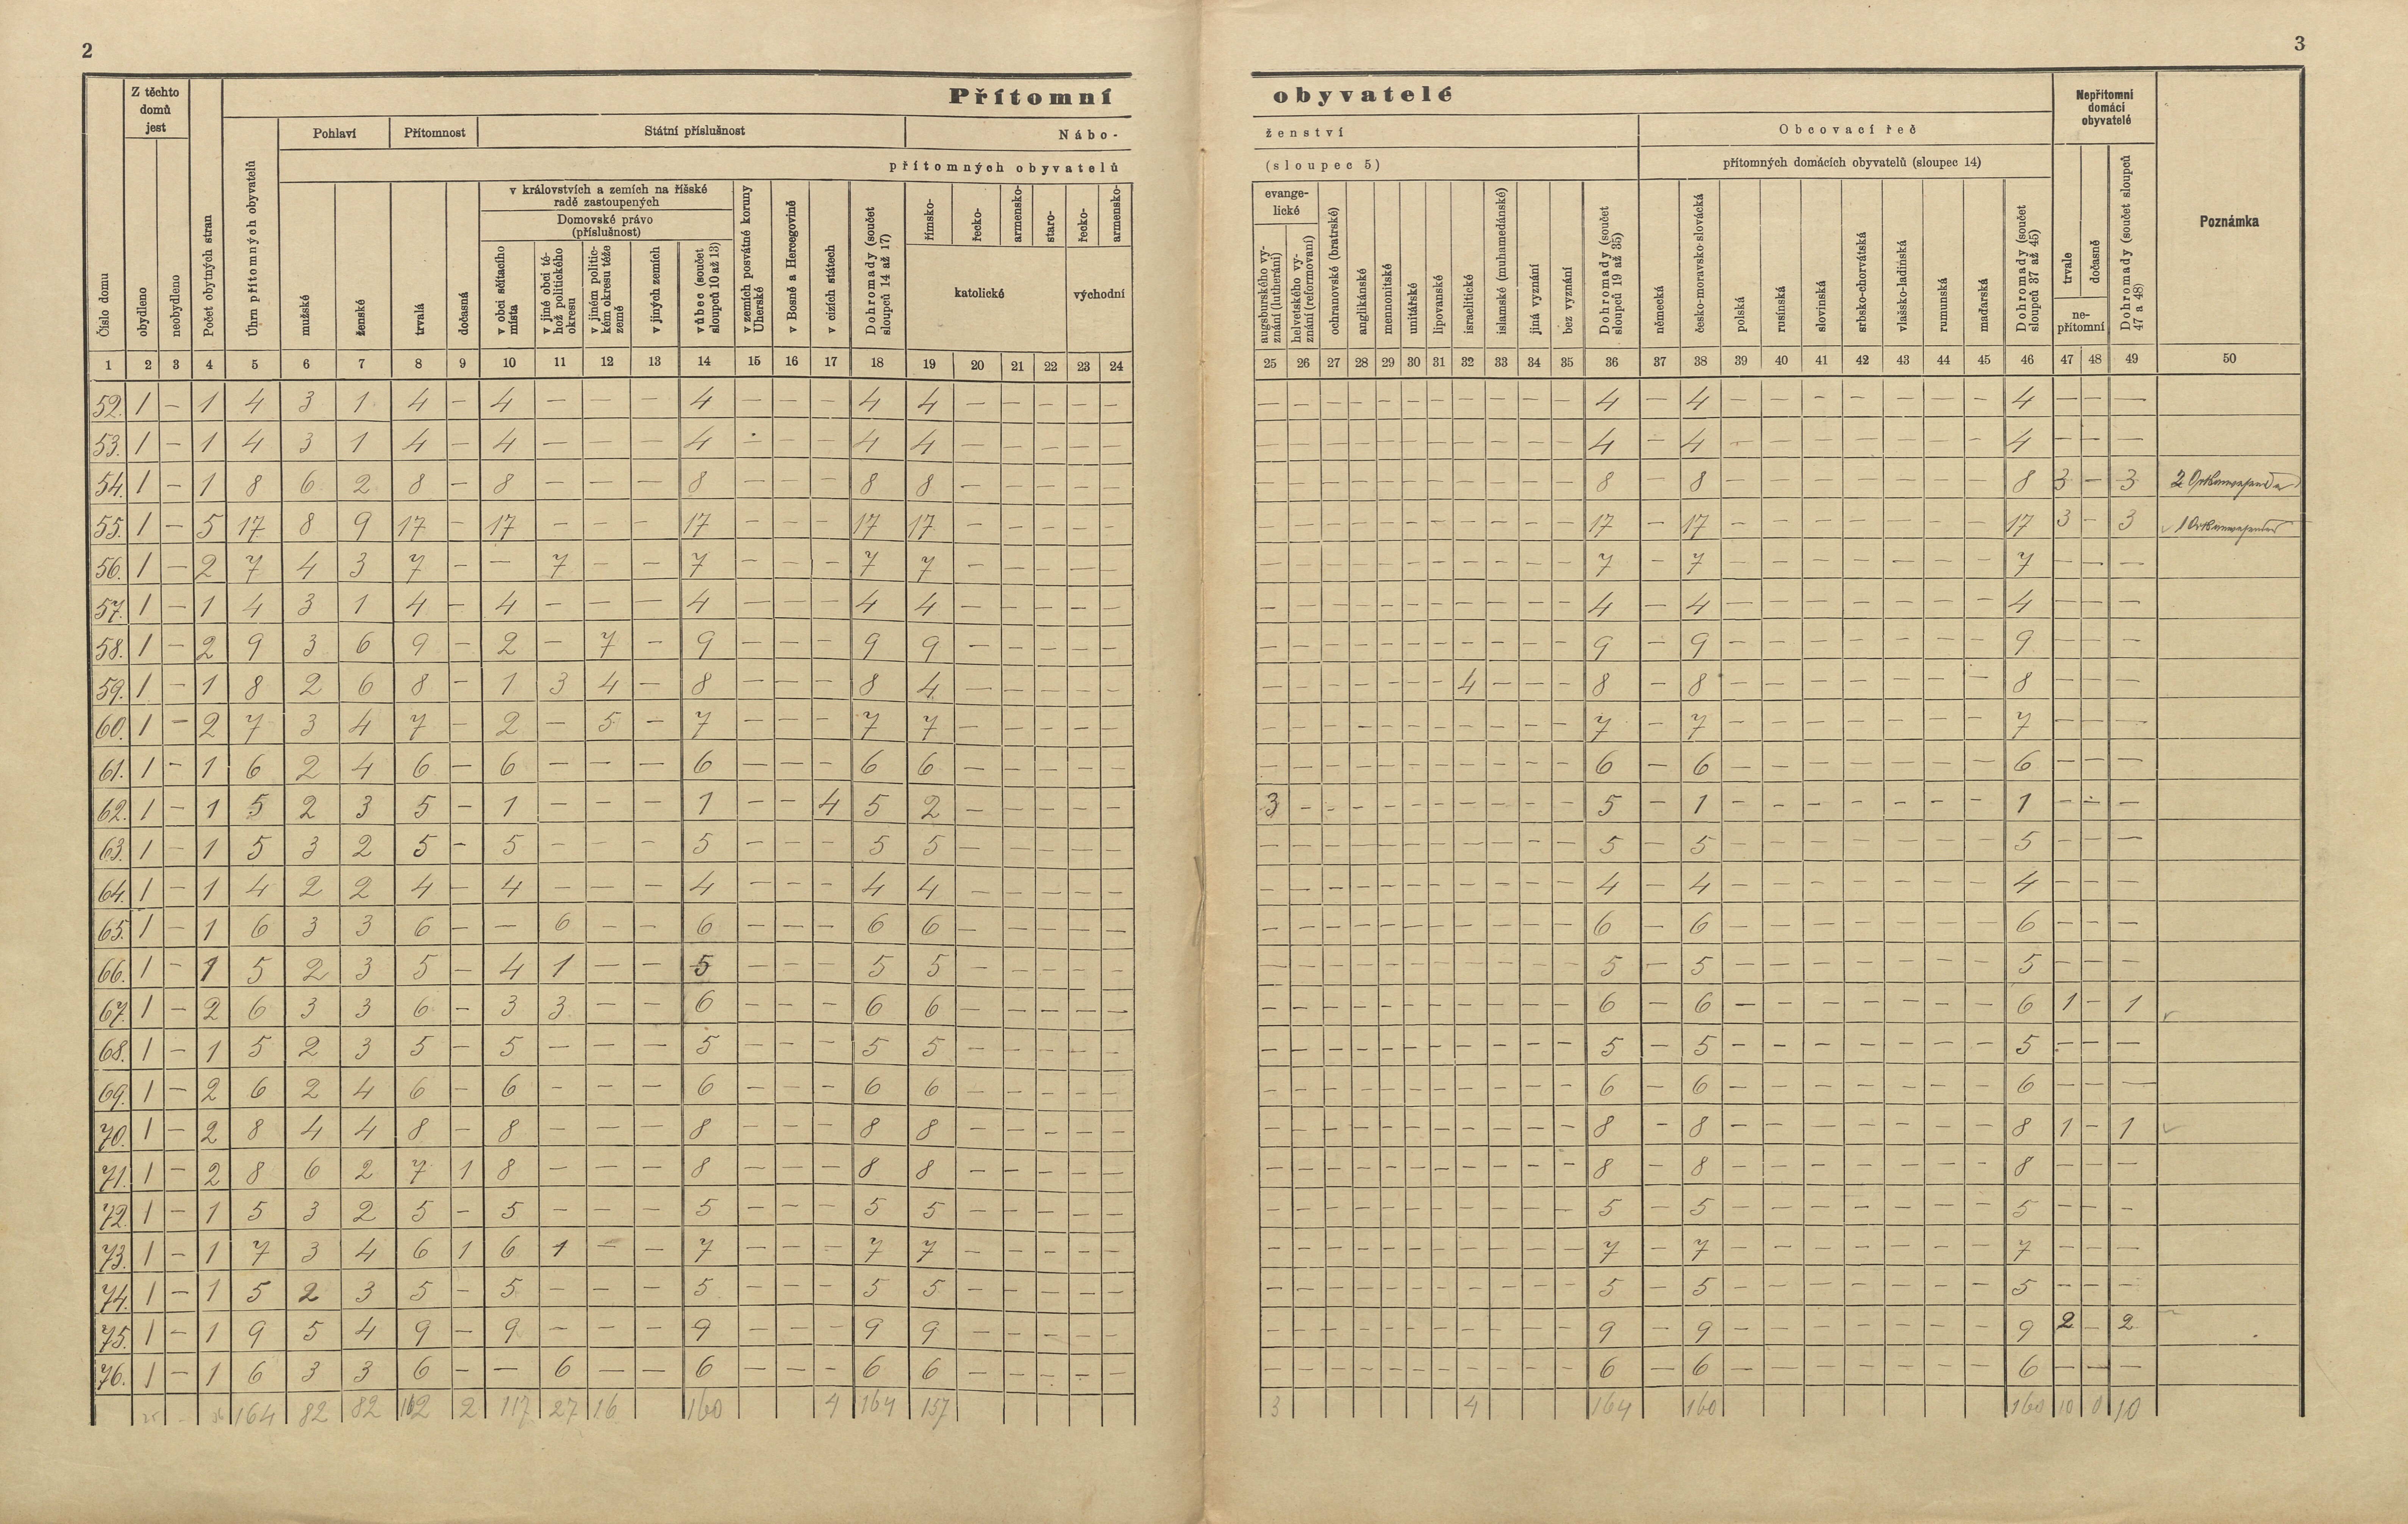 2
3
Přítomní obyvatelé
Číslo domu
Z těchto domů jest
obydleno
neobydleno
Počet obytných stran
Úhrn přítomných obyvatelů
Pohlaví
Přítomnost
Státní příslušnost
Nábo-
ženství
přítomných obyvatelů
(sloupec 5)
mužské
ženské
trvalá
dočasná
v královstvích a zemích na říšské radě zastoupených
Domovské právo (příslušnost)
v obci sčítacího místa
v jiné obci téhož politického okresu
v jiném politickém okresu téže země
v jiných zemích
vůbec (součet sloupců 10 až 13)
v zemích posvátné koruny Uherské
v Bosně a Hercegovině
v cizích státech
Dohromady (součet sloupců 14 až 17)
římsko-
řecko-
armensko-
staro-
katolické
řecko-
armensko-
východní
evangelické
augsburského vyznání (lutheráni)
helvetského vyznání (reformovaní)
ochranovské (bratrské)
anglikánské
mennonitské
unitářské
lipovanské
israelitické
islamské (muhamedánské)
jiná vyznání
bez vyznání
Dohromady (součet sloupců 19 až 35)
Obcovací řeč
přítomných domácích obyvatelů (sloupec 14)
německá
česko-moravsko-slovácká
polská
rusínská
slovinská
srbsko-chorvátská
vlašsko-ladinská
rumunská
maďarská
Dohromady (součet sloupců 37 až 45)
Nepřítomni domácí obyvatelé
trvale
dočasně
nepřítomní
Dohromady (součet sloupců 47 a 48)
Poznámka
1 2 3 4 5 6 7 8 9 10 11 12 13 14 15 16 17 18 19 20 21 22 23 24 25 26 27 28 29 30 31 32 33 34 35 36 37 38 39 40 41 42 43 44 45 46 47 48 49 50
52. 1 – 1 4 3 1 4 – 4 – – – 4 – – – 4 4 – – – – – – – – – – – – – – – – 4 – 4 – – – – – – – 4 – – –
53. 1 – 1 4 3 1 4 – 4 – – – 4 – – – 4 4 – – – – – – – – – – – – – – – – 4 – 4 – – – – – – – 4 – – –
54. 1 – 1 8 6 2 8 – 8 – – – 8 – – – 8 8 – – – – – – – – – – – – – – – – 8 – 8 – – – – – – – 8 3 – 3 2
55. 1 – 5 17 8 9 17 – 17 – – – 17 – – – 17 17 – – – – – – – – – – – – – – – – 17 – 17 – – – – – – – 17 3 – 3 1
56. 1 – 2 7 4 3 7 – – 7 – – 7 – – – 7 7 – – – – – – – – – – – – – – – – 7 – 7 – – – – – – – 7 – – –
57. 1 – 1 4 3 1 4 – 4 – – – 4 – – – 4 4 – – – – – – – – – – – – – – – – 4 – 4 – – – – – – – 4 – – –
58. 1 – 2 9 3 6 9 – 2 – 7 – 9 – – – 9 9 – – – – – – – – – – – – – – – – 9 – 9 – – – – – – – 9 – – –
59. 1 – 1 8 2 6 8 – 1 3 4 – 8 – – – 8 4 – – – – – – – – – – – – 4 – – – 8 – 8 – – – – – – – 8 – – –
60. 1 – 2 7 3 4 7 – 2 – 5 – 7 – – – 7 7 – – – – – – – – – – – – – – – – 7 – 7 – – – – – – – 7 – – –
61. 1 – 1 6 2 4 6 – 6 – – – 6 – – – 6 6 – – – – – – – – – – – – – – – – 6 – 6 – – – – – – – 6 – – –
62. 1 – 1 5 2 3 5 – 1 – – – 1 – – 4 5 2 – – – – – 3 – – – – – – – – – – 5 – 1 – – – – – – – 1 – – –
63. 1 – 1 5 3 2 5 – 5 – – – 5 – – – 5 5 – – – – – – – – – – – – – – – – 5 – 5 – – – – – – – 5 – – –
64. 1 – 1 4 2 2 4 – 4 – – – 4 – – – 4 4 – – – – – – – – – – – – – – – – 4 – 4 – – – – – – – 4 – – –
65. 1 – 1 6 3 3 6 – – 6 – – 6 – – – 6 6 – – – – – – – – – – – – – – – – 6 – 6 – – – – – – – 6 – – –
66. 1 – 1 5 2 3 5 – 4 1 – – 5 – – – 5 5 – – – – – – – – – – – – – – – – 5 – 5 – – – – – – – 5 – – –
67. 1 – 2 6 3 3 6 – 3 3 – – 6 – – – 6 6 – – – – – – – – – – – – – – – – 6 – 6 – – – – – – – 6 1 – 1
68. 1 – 1 5 2 3 5 – 5 – – – 5 – – – 5 5 – – – – – – – – – – – – – – – – 5 – 5 – – – – – – – 5 – – –
69. 1 – 2 6 2 4 6 – 6 – – – 6 – – – 6 6 – – – – – – – – – – – – – – – – 6 – 6 – – – – – – – 6 – – –
70. 1 – 2 8 4 4 8 – 8 – – – 8 – – – 8 8 – – – – – – – – – – – – – – – – 8 – 8 – – – – – – – 8 1 – 1
71. 1 – 2 8 6 2 7 1 8 – – – 8 – – – 8 8 – – – – – – – – – – – – – – – – 8 – 8 – – – – – – – 8 – – –
72. 1 – 1 5 3 2 5 – 5 – – – 5 – – – 5 5 – – – – – – – – – – – – – – – – 5 – 5 – – – – – – – 5 – – –
73. 1 – 1 7 3 4 6 1 6 1 – – 7 – – – 7 7 – – – – – – – – – – – – – – – – 7 – 7 – – – – – – – 7 – – –
74. 1 – 1 5 2 3 5 – 5 – – – 5 – – – 5 5 – – – – – – – – – – – – – – – – 5 – 5 – – – – – – – 5 – – –
75. 1 – 1 9 5 4 9 – 9 – – – 9 – – – 9 9 – – – – – – – – – – – – – – – – 9 – 9 – – – – – – – 9 2 – 2
76. 1 – 1 6 3 3 6 – – 6 – – 6 – – – 6 6 – – – – – – – – – – – – – – – – 6 – 6 – – – – – – – 6 – – –
25 – 36 164 82 82 162 2 117 27 16 160 4 164 157 3 4 164 160 160 10 0 10